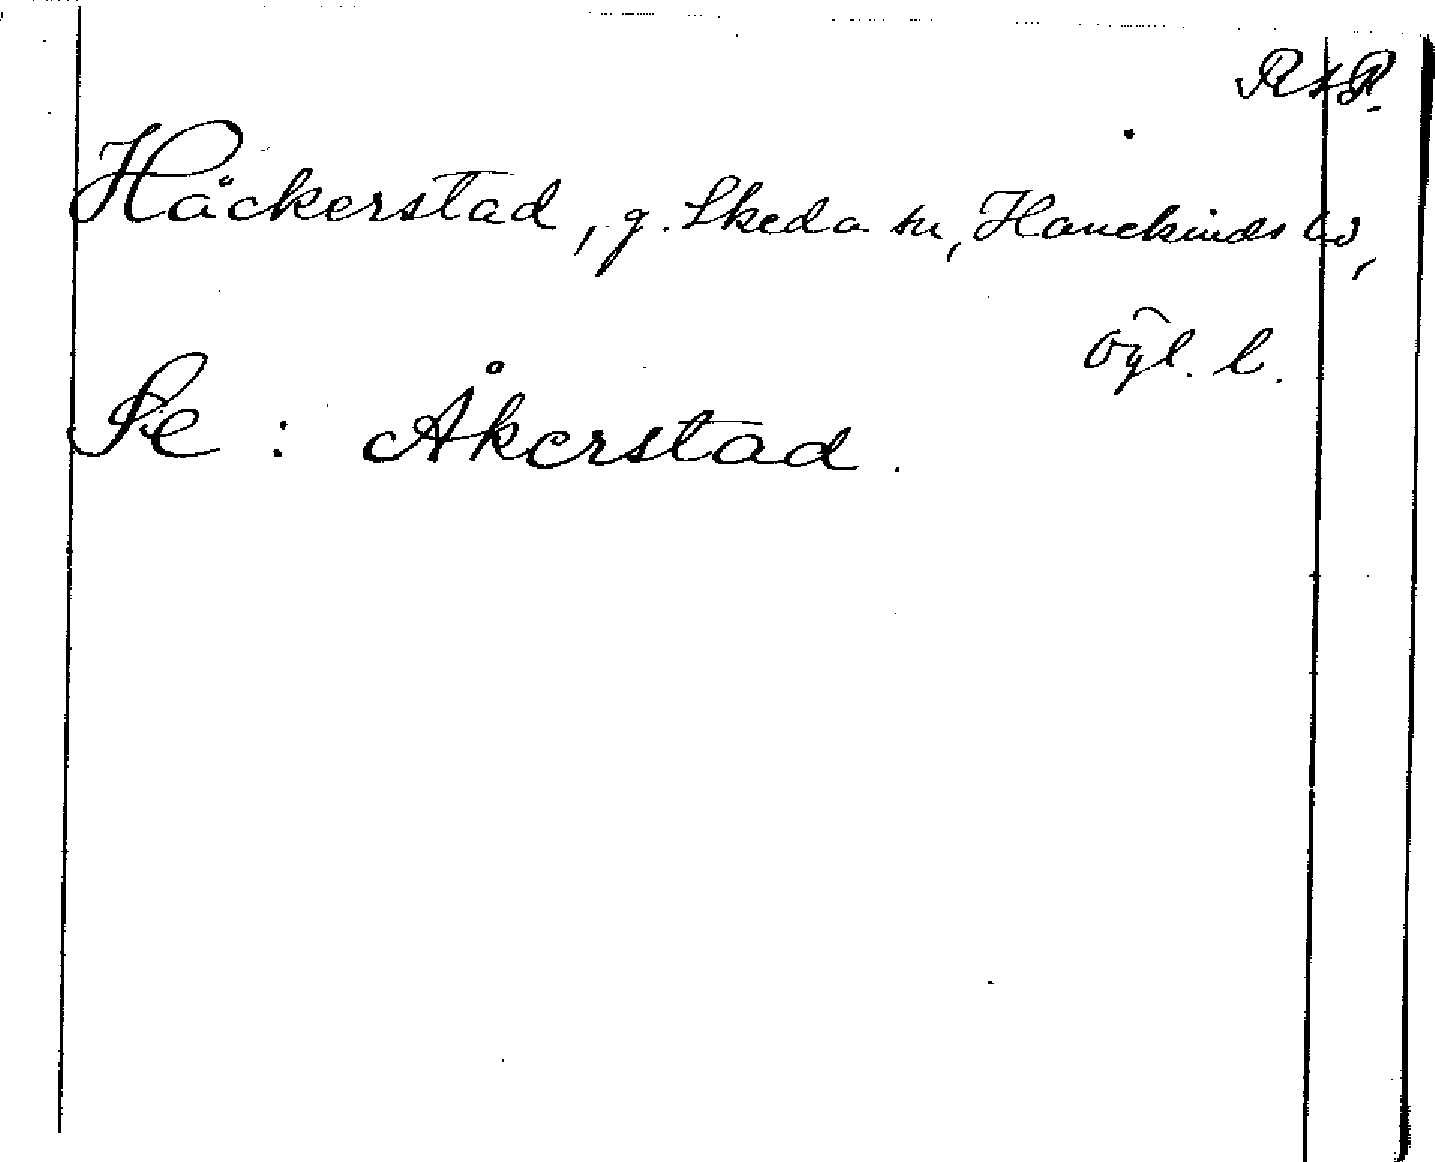 Häckerstad, g. Skeda sn, Hanekinds hd,
Ögl. l.
Se : Åkerstad.